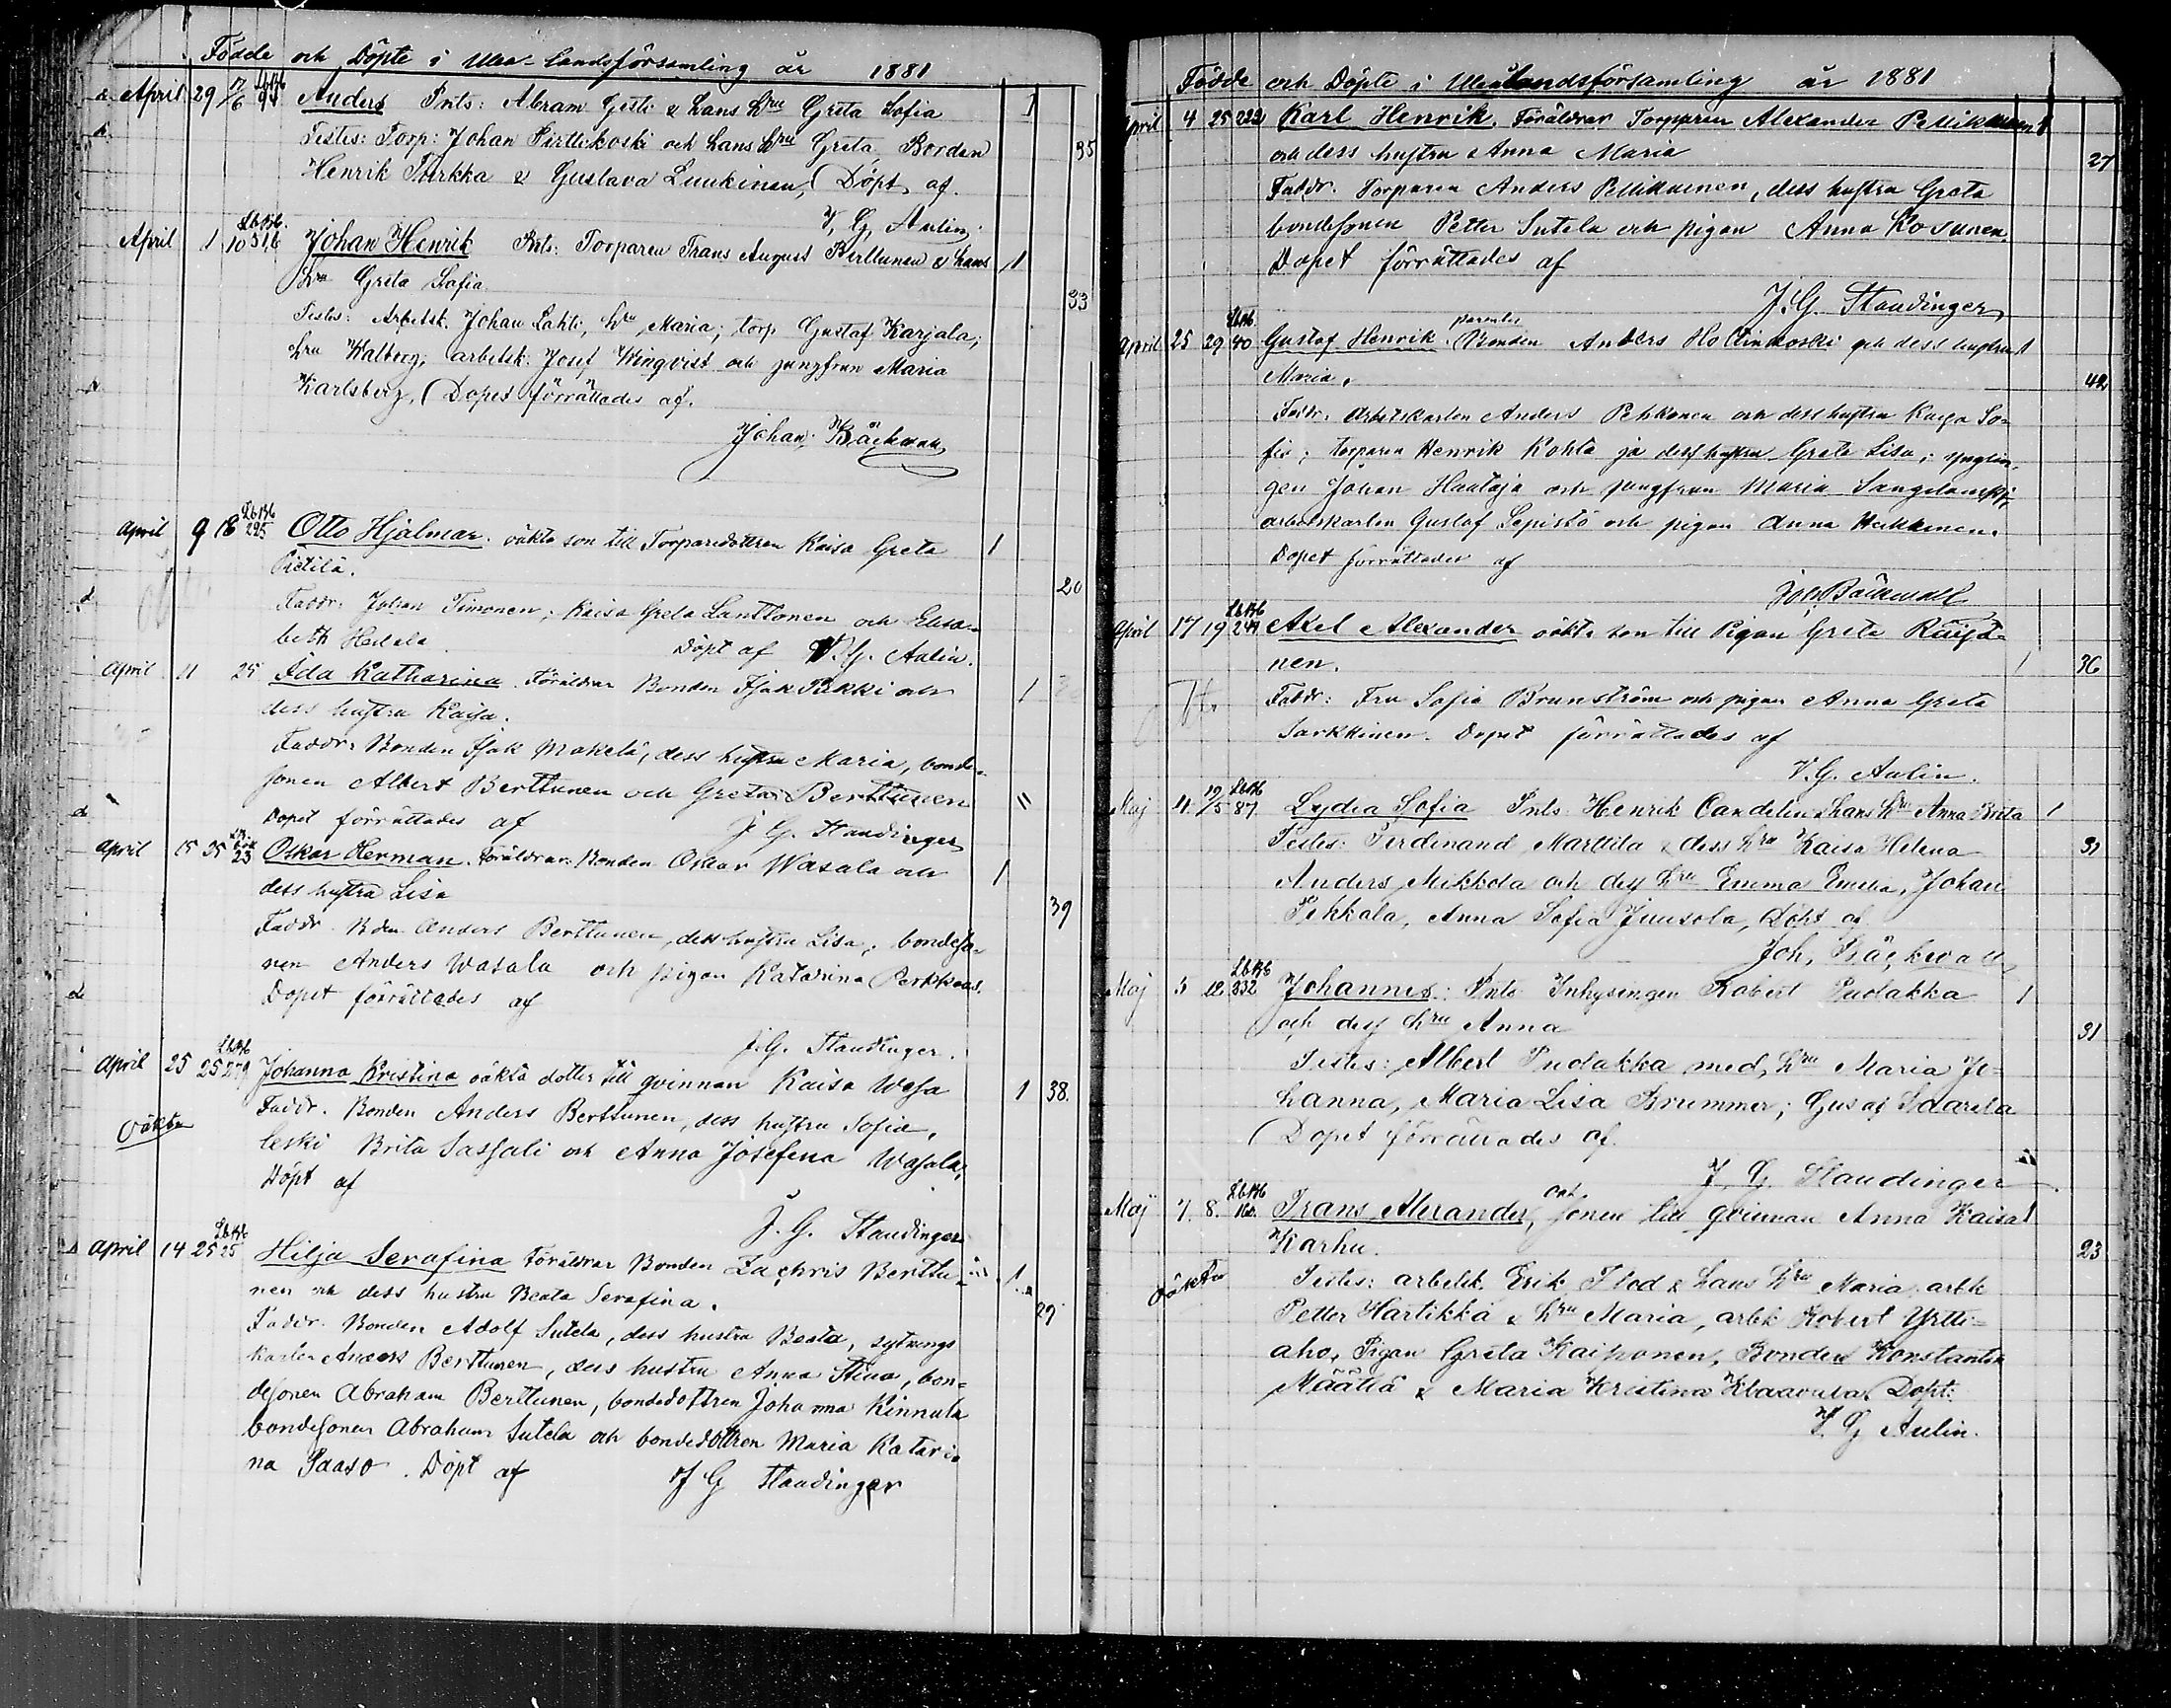 Födde och Döpte i Uleå Landsförsamling år 1881
April 29 17/6 94 Anders Prnts: Abram Gesti & hans hru Greta Sofia 1
Testes: Torp: Johan Pirttikoski och hans hru Greta, Borden 35
Henrik & Gustava Luukinen, Döpt af
V. G. Aulin.
April 1 10 316 Johan Henrik Prnts: Torparen Frans August Berttunen & hans 1
hru Greta Sofia 33
Testes: Arbetsk. Johan Lahti, hru Maria; torp Gustaf Karjala,
hru Walborg; arbetsk. Josef Winqvist och jungfrun Maria
Karlsberg. Dopet förrättades af.
Johan Bäckman
April 9 18 295 Otto Hjalmar. oäkta son till Torparedottren Kaisa Greta 1
Pietilä. 20
Faddr: Johan Timonen; Kaisa Greta Lanttonen och Elisa-
beth Heikala Döpt af V. G. Aulin.
April 11 25 Ida Katharina Föräldrar Bonden Isak Pukki och 1
dess hustru Kaisa.
Faddr: Bonden Isak Makelä, dess hustru Maria, bonde-
sonen Albert Berttunen och Greta Berttunen "
Dopet förrättades af J. G. Staudinger
April 15 25 23 Oskar Herman. Föräldrar: Bonden Oskar Wasala och 1
dess hustru Lisa 39
Faddr. Bden Anders Berttunen, dess hustru Lisa; bondeso-
nen Anders Wasala och pigan Katarina
Dopet förrättades af
J. G. Staudinger.
April 25 25 279 Johanna Kristina oäkta dotter till qvinnan Kaisa Wasa 1 38.
oäkta Faddr. Bonden Anders Berttunen, dess hustru Sofia,
leski Brita Sassali och Anna Josefina Wasala,
Döpt af
J. G. Staudinger
April 14 25 25 Hilja Serafina Föräldrar Bonden Zachris Berttu- 1
nen och dess hustru Beata Serafina. 29
Faddr. Bonden Adolf Sutela, dess hustru Beata, sytnings
karlen Anders Berttunen, dess hustru Anna Stina, bon-
desonen Abraham Berttunen, bondedottren Johanna Kinnula
bondesonen Abraham Sutela och bondedottren Maria Katari-
na Paaso. Döpt af J G Staudinger
Födde och Döpte i Uleålandsförsamling år 1881
April 4 25 222 Karl Henrik. Föräldrar Torparen Alexander Pellikainen 1
och dess hustru Anna Maria 27
Faddr. Torparen Anders Pellikainen, dess hustru Greta
bondesonen Petter Sutela och pigan Anna Kosunen.
Dopet förrättades af
J. G. Staudinger
April 25 29 40 Gustaf Henrik. parentes Bonden Anders Hollinkoski och dess hustru 1
Maria. 42
Faddr. Arbetskarlen Anders Pehkonen och dess hustru Kaisa So-
fia; torparen Henrik Kohta ja dess hustru Greta Lisa; ynglin-
gen Johan Haataja och jungfrun Maria
arbetskarlen Gustaf Lepistö och pigan Anna Heikkinen.
Dopet förrättades af
Joh. Bäckwall
April 17 19 249 Axel Alexander oäkta son till Pigan Greta Raisä-
nen. 1 36
Faddr: Fru Sofia Brunström och pigan Anna Greta
Sarkkinen. Dopet förrättades af
V. G. Aulin.
Maj 11 19/5 87 Lydia Sofia Prnts Henrik Candelin & hans hru Anna Brita 1
Testes: Ferdinand Marttila & dess hru Kaisa Helena 31
Anders Mikkola och dess hru Emma Emelia, Johan
Pekkala, Anna Sofia Juusola, Döpt af
Joh. Bäckwall
Maj 5 12 332 Johannes: Prnts Inhysingen Robert Pudakka 1
och dess hru Anna 31
Testes: Albert Pudakka med hru Maria Jo-
hanna, Maria Lisa Brummer; Gustaf Saarela
Dopet förrättades af.
J. G. Staudinger
Maj 7. 8. 160. Frans Alexander, oäk. sonen till qvinnan Anna Kaisa 1
Karhu. 23
oäkta Testes: arbetk. Erik Flod & hans hru Maria arbk
Petter Hartikka & hru Maria, arbk Robert Yrtti-
aho, Pigan Greta Kaiponen, Bonden Konstantin
Määttä & Maria Kristina Klaavula, Döpt:
V. G Aulin.